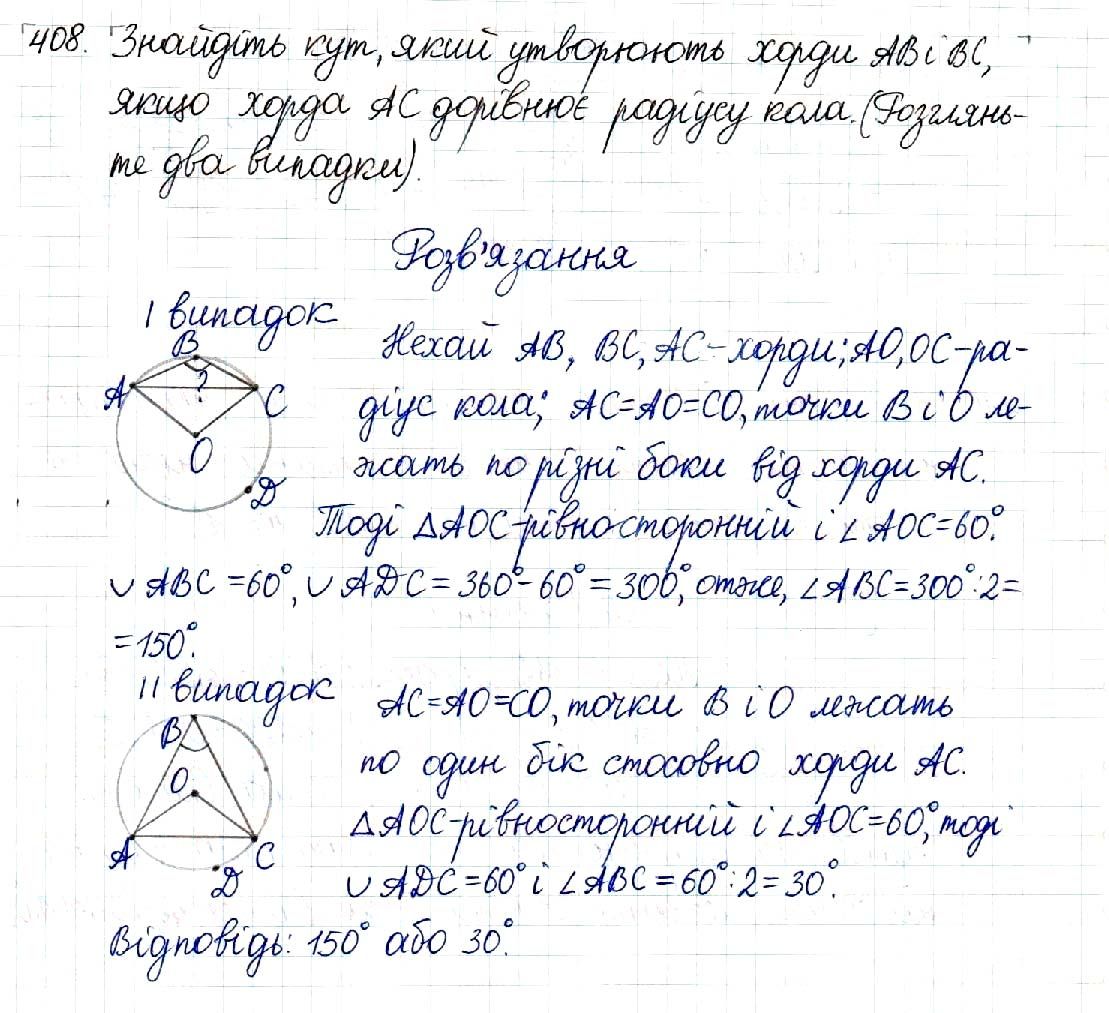 408. Знайдіть кут, який утворюють хорди AB і BC,
якщо хорда AC дорівнює радіусу кола. (Розглянь-
те два випадки).
Розв'язання
I випадок
B
A
?
C
O
D
Нехай AB, BC, AC - хорди; AO, OC - ра-
діус кола; AC=AO=CO, точки B і O ле-
жать по різні боки від хорди AC.
Тоді △AOC - рівносторонній і ∠AOC=60°.
∪ABC=60°, ∪ADC=360°-60°=300°, отже, ∠ABC=300°:2=
=150°.
II випадок
B
O
A
C
D
AC=AO=CO, точки B і O лежать
по один бік стосовно хорди AC.
△AOC - рівносторонній і ∠AOC=60°, тоді
∪ADC=60° і ∠ABC=60°:2=30°.
Відповідь: 150° або 30°.